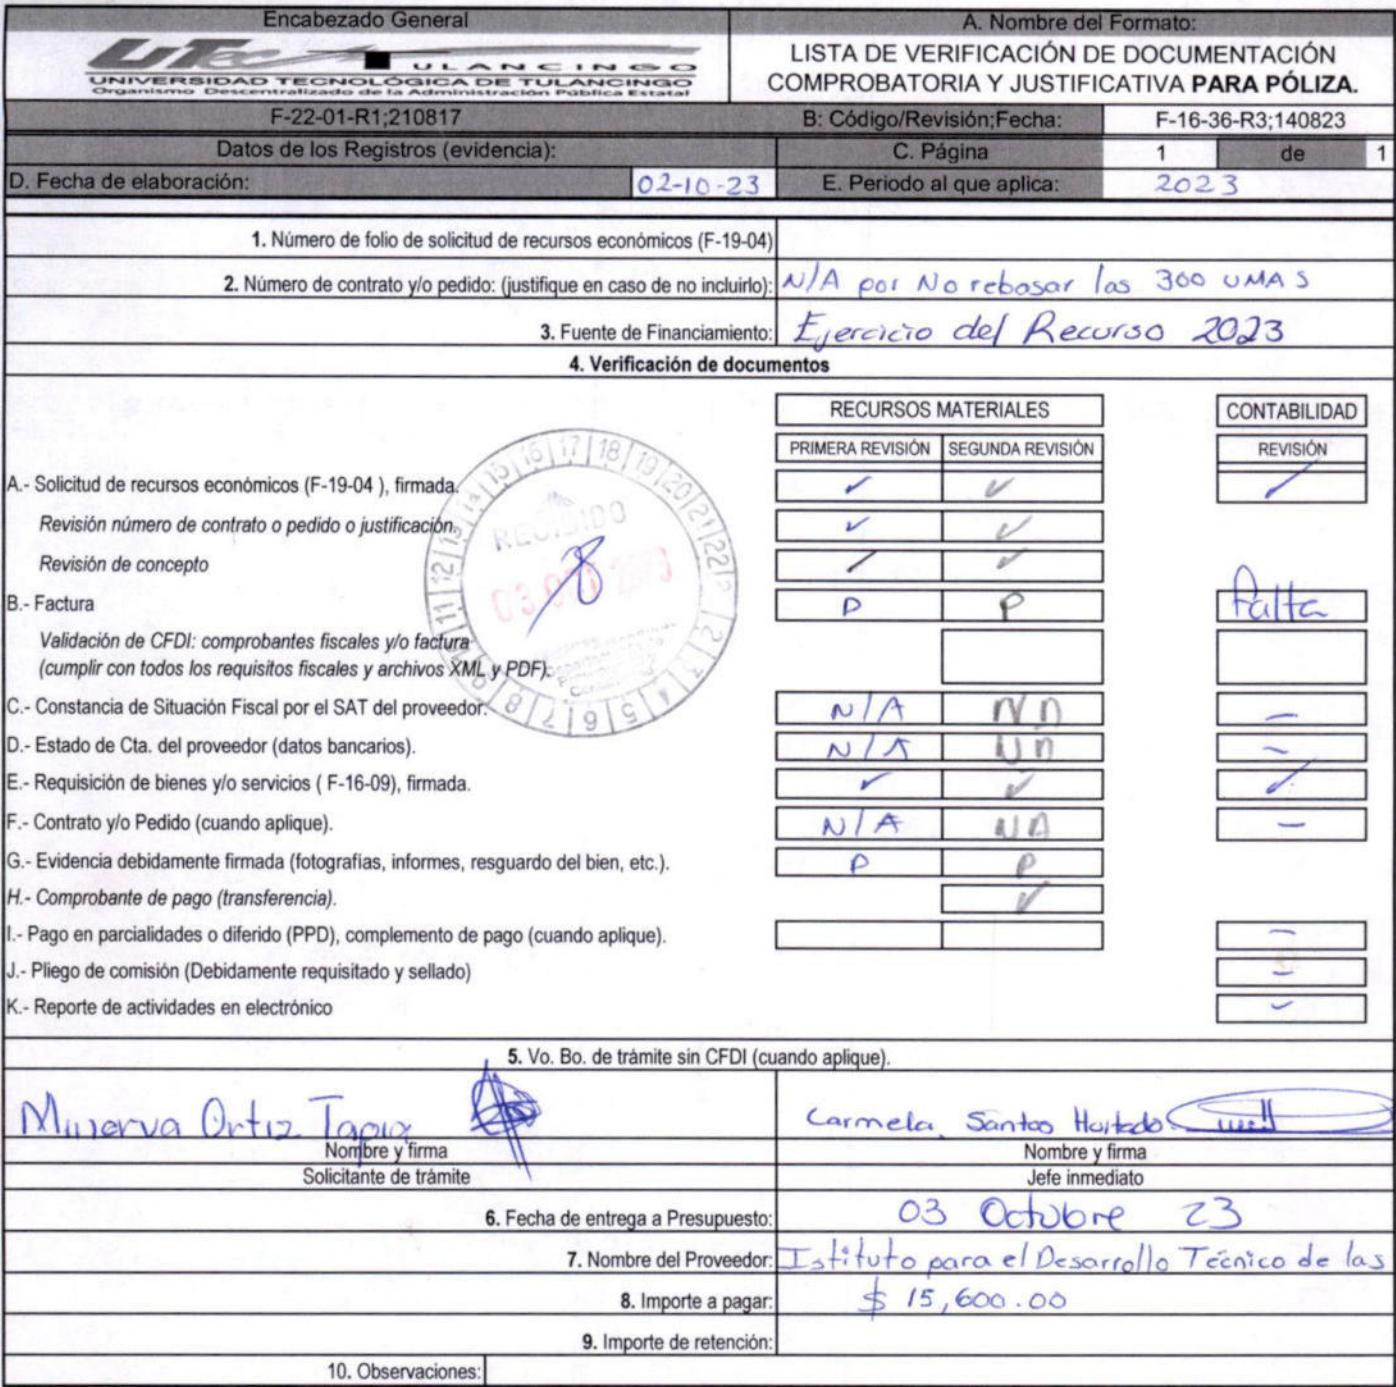 Encabezado General
A. Nombre del Formato:
UTec TULANCINGO
UNIVERSIDAD TECNOLÓGICA DE TULANCINGO
Organismo Descentralizado de la Administración Pública Estatal
LISTA DE VERIFICACIÓN DE DOCUMENTACIÓN
COMPROBATORIA Y JUSTIFICATIVA PARA PÓLIZA.
F-22-01-R1;210817
B: Código/Revisión;Fecha: F-16-36-R3;140823
Datos de los Registros (evidencia):
C. Página 1 de 1
D. Fecha de elaboración: 02-10-23
E. Periodo al que aplica: 2023
1. Número de folio de solicitud de recursos económicos (F-19-04)
2. Número de contrato y/o pedido: (justifique en caso de no incluirlo): N/A por No rebasar las 300 UMAS
3. Fuente de Financiamiento: Ejercicio del Recurso 2023
4. Verificación de documentos
RECURSOS MATERIALES CONTABILIDAD
PRIMERA REVISIÓN SEGUNDA REVISIÓN REVISIÓN
A.- Solicitud de recursos económicos (F-19-04 ), firmada. ✓ ✓ ✓
Revisión número de contrato o pedido o justificación. ✓ ✓
Revisión de concepto ✓ ✓
B.- Factura P P Falta
Validación de CFDI: comprobantes fiscales y/o factura
(cumplir con todos los requisitos fiscales y archivos XML y PDF).
C.- Constancia de Situación Fiscal por el SAT del proveedor. N/A NA –
D.- Estado de Cta. del proveedor (datos bancarios). N/A NA –
E.- Requisición de bienes y/o servicios ( F-16-09), firmada. ✓ ✓ ✓
F.- Contrato y/o Pedido (cuando aplique). N/A NA –
G.- Evidencia debidamente firmada (fotografías, informes, resguardo del bien, etc.). P P
H.- Comprobante de pago (transferencia). ✓
I.- Pago en parcialidades o diferido (PPD), complemento de pago (cuando aplique). –
J.- Pliego de comisión (Debidamente requisitado y sellado) –
K.- Reporte de actividades en electrónico –
RECIBIDO
03 OCT 2023
5. Vo. Bo. de trámite sin CFDI (cuando aplique).
Minerva Ortiz Tapia
Carmela Santos Hurtado
Nombre y firma
Nombre y firma
Solicitante de trámite
Jefe inmediato
6. Fecha de entrega a Presupuesto: 03 Octubre 23
7. Nombre del Proveedor: Istituto para el Desarrollo Técnico de las
8. Importe a pagar: $ 15,600.00
9. Importe de retención:
10. Observaciones: